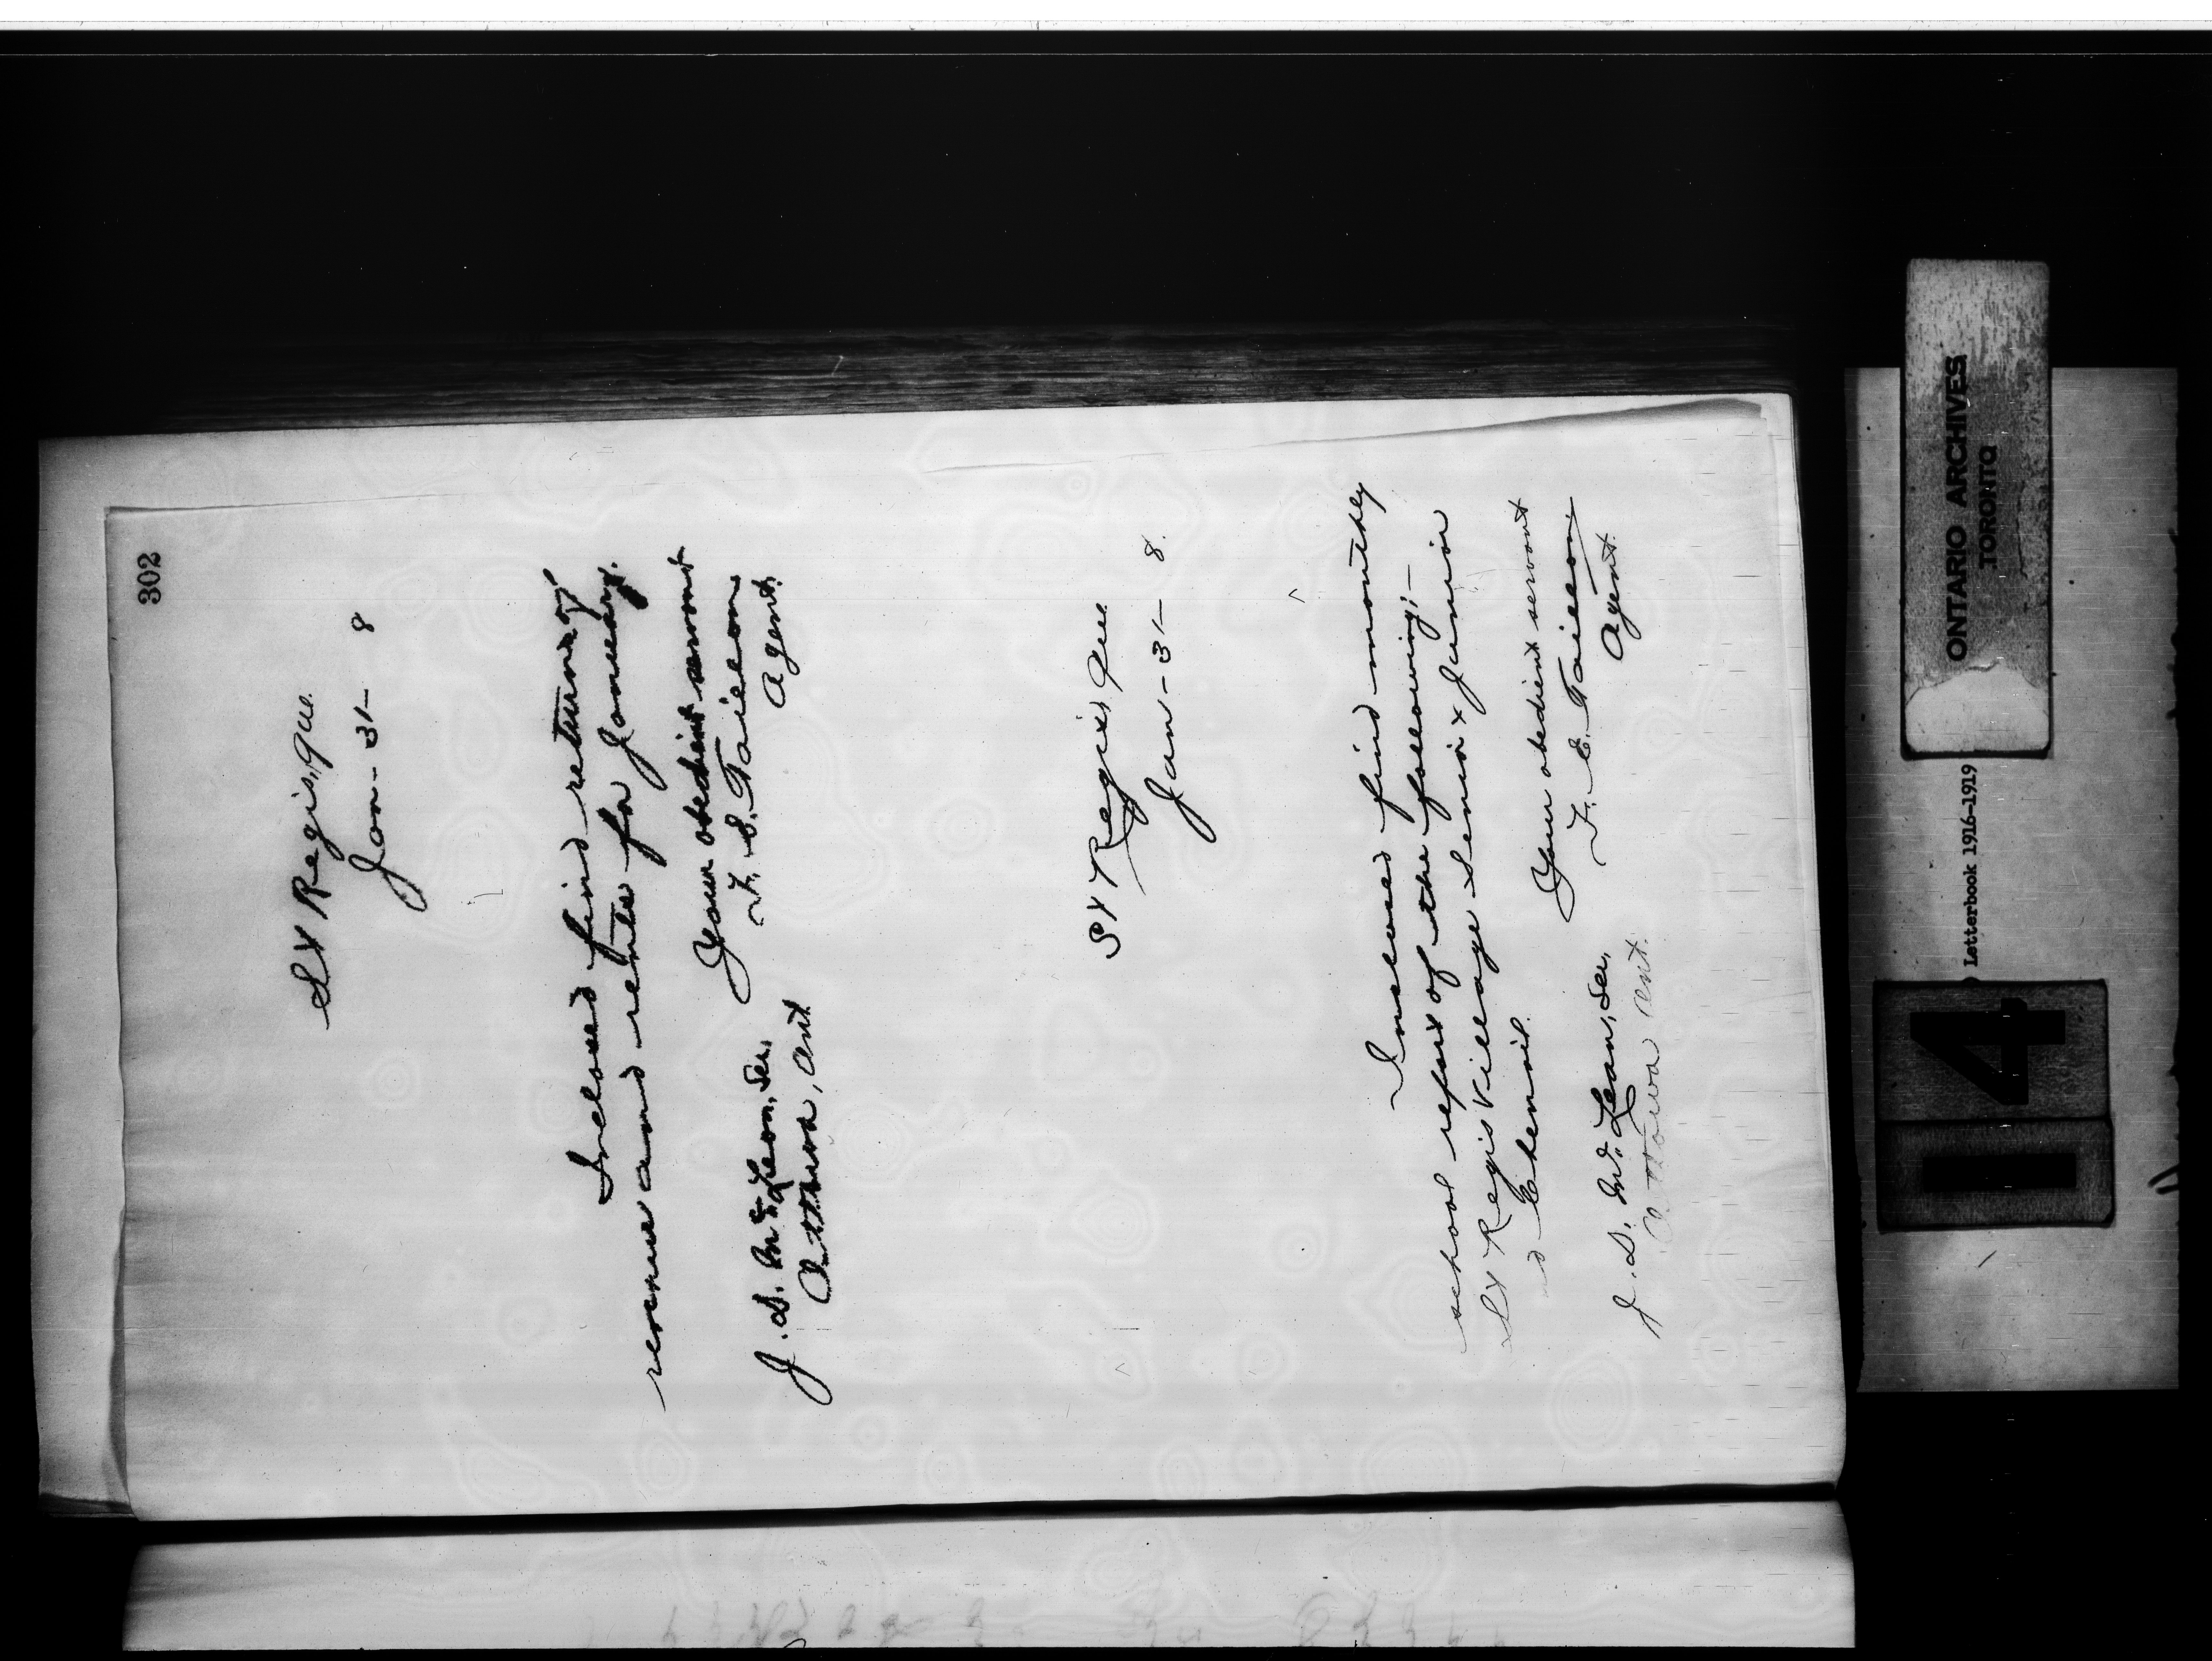 302
St Regis, Que.
Jan - 31 - 8
Inclosed find return of
revenue and rents for January.
Your obedient servant
F. E. Taillon
Agent.
J. D. McLean, Sec,
Ottawa, Ont.
St Regis, Que
Jan - 31 - 8.
Inclosed find monthly
school report of the following:-
St Regis Village Senior & Junior
Chenail.
Your obedient servant
F. E. Taillon
Agent.
J. D. McLean, Sec,
Ottawa Ont.
ONTARIO ARCHIVES
TORONTO
Letterbook 1916-1919
14